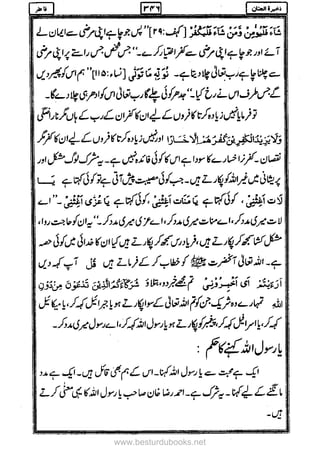 فاطر
۳۴۶
ذخیرة الجنان
شَآءَ فَلْیُؤْمِنْ وَّمَنْ شَآءَ فَلْیَکْفُرْ [کہف: ۲۹] ”پس جو چاہے اپنی مرضی سے ایمان لے
آئے اور جو چاہے اپنی مرضی سے کفر اختیار کرے۔“ جس شخص جس راستے پر اپنی مرضی
سے چلنا چاہے رب تعالیٰ چلا دیتا ہے۔ نُوَلِّہٖ مَا تَوَلّٰی [نساء: ۱۱۵] ”ہم اس کو پھیر دیں
گے جس طرف اس نے رخ کیا۔“ جدھر کوئی چلے گا رب تعالیٰ اس کو ادھر ہی چلا دے گا۔
تو فرمایا نہیں زیادہ کرتا کافروں کے لیے ان کا کفر ان کے رب کے ہاں مگر ناراضگی
وَلَا یَزِیْدُ الْکٰفِرِیْنَ کُفْرُہُمْ اِلَّا خَسَارًا اور نہیں زیادہ کرتا کافروں کے لیے ان کا کفر مگر
نقصان۔ کفر نرا خسارے کا سودا ہے اس کا کوئی فائدہ نہیں ہے۔ مشرک لوگ مشکل اور
پریشانی میں غیر اللہ کو پکارتے ہیں۔ جب کوئی مصیبت پیش آتی ہے تو کوئی کہتا ہے یَا
لَاتُ اَغِثْنِیْ، کوئی کہتا ہے یَا مَنَاتُ اَغِثْنِیْ، کوئی کہتا ہے یَا عُزّٰی اَغِثْنِیْ۔ ”اے
لات میری مدد کر، اے منات میری مدد کر، اے عزیٰ میری مدد کر۔“ یہ ان کو حاجت روا،
مشکل کشا سمجھ کر پکارتے ہیں، فریاد رس سمجھ کر پکارتے ہیں کیا ان کا خدائی میں کوئی حصہ
ہے۔ اللہ تعالیٰ آنحضرت ﷺ کو خطاب کر کے فرماتے ہیں قُلْ آپ کہہ دیں
اَرَءَیْتُمْ اَیْ اَخْبِرُوْنِیْ تم مجھے خبر دو، بتلاؤ شُرَکَآءَکُمُ الَّذِیْنَ تَدْعُوْنَ مِنْ دُوْنِ
اللّٰہِ تمہارے وہ شریک جن کو تم اللہ تعالیٰ کے سوا پکارتے ہو یا جبرائیل کہہ کر، یا میکائیل
کہہ کر، یا اسرافیل کہہ کر، پیغمبر کو پکارتے ہو یا رسول اللہ کہہ کر، اے رسول میری مدد کر۔
یا رسول اللہ کہنے کا حکم :
ایک ہے محبت سے یا رسول اللہ کہنا۔ اس کے بھی ہم قائل ہیں۔ ایک ہے مدد
مانگنے کے لیے کہنا۔ یہ شرک ہے۔ احمد رضا خان صاحب یا رسول اللہ کا یہی معنیٰ کرتے
ہیں۔
www.besturdubooks.net